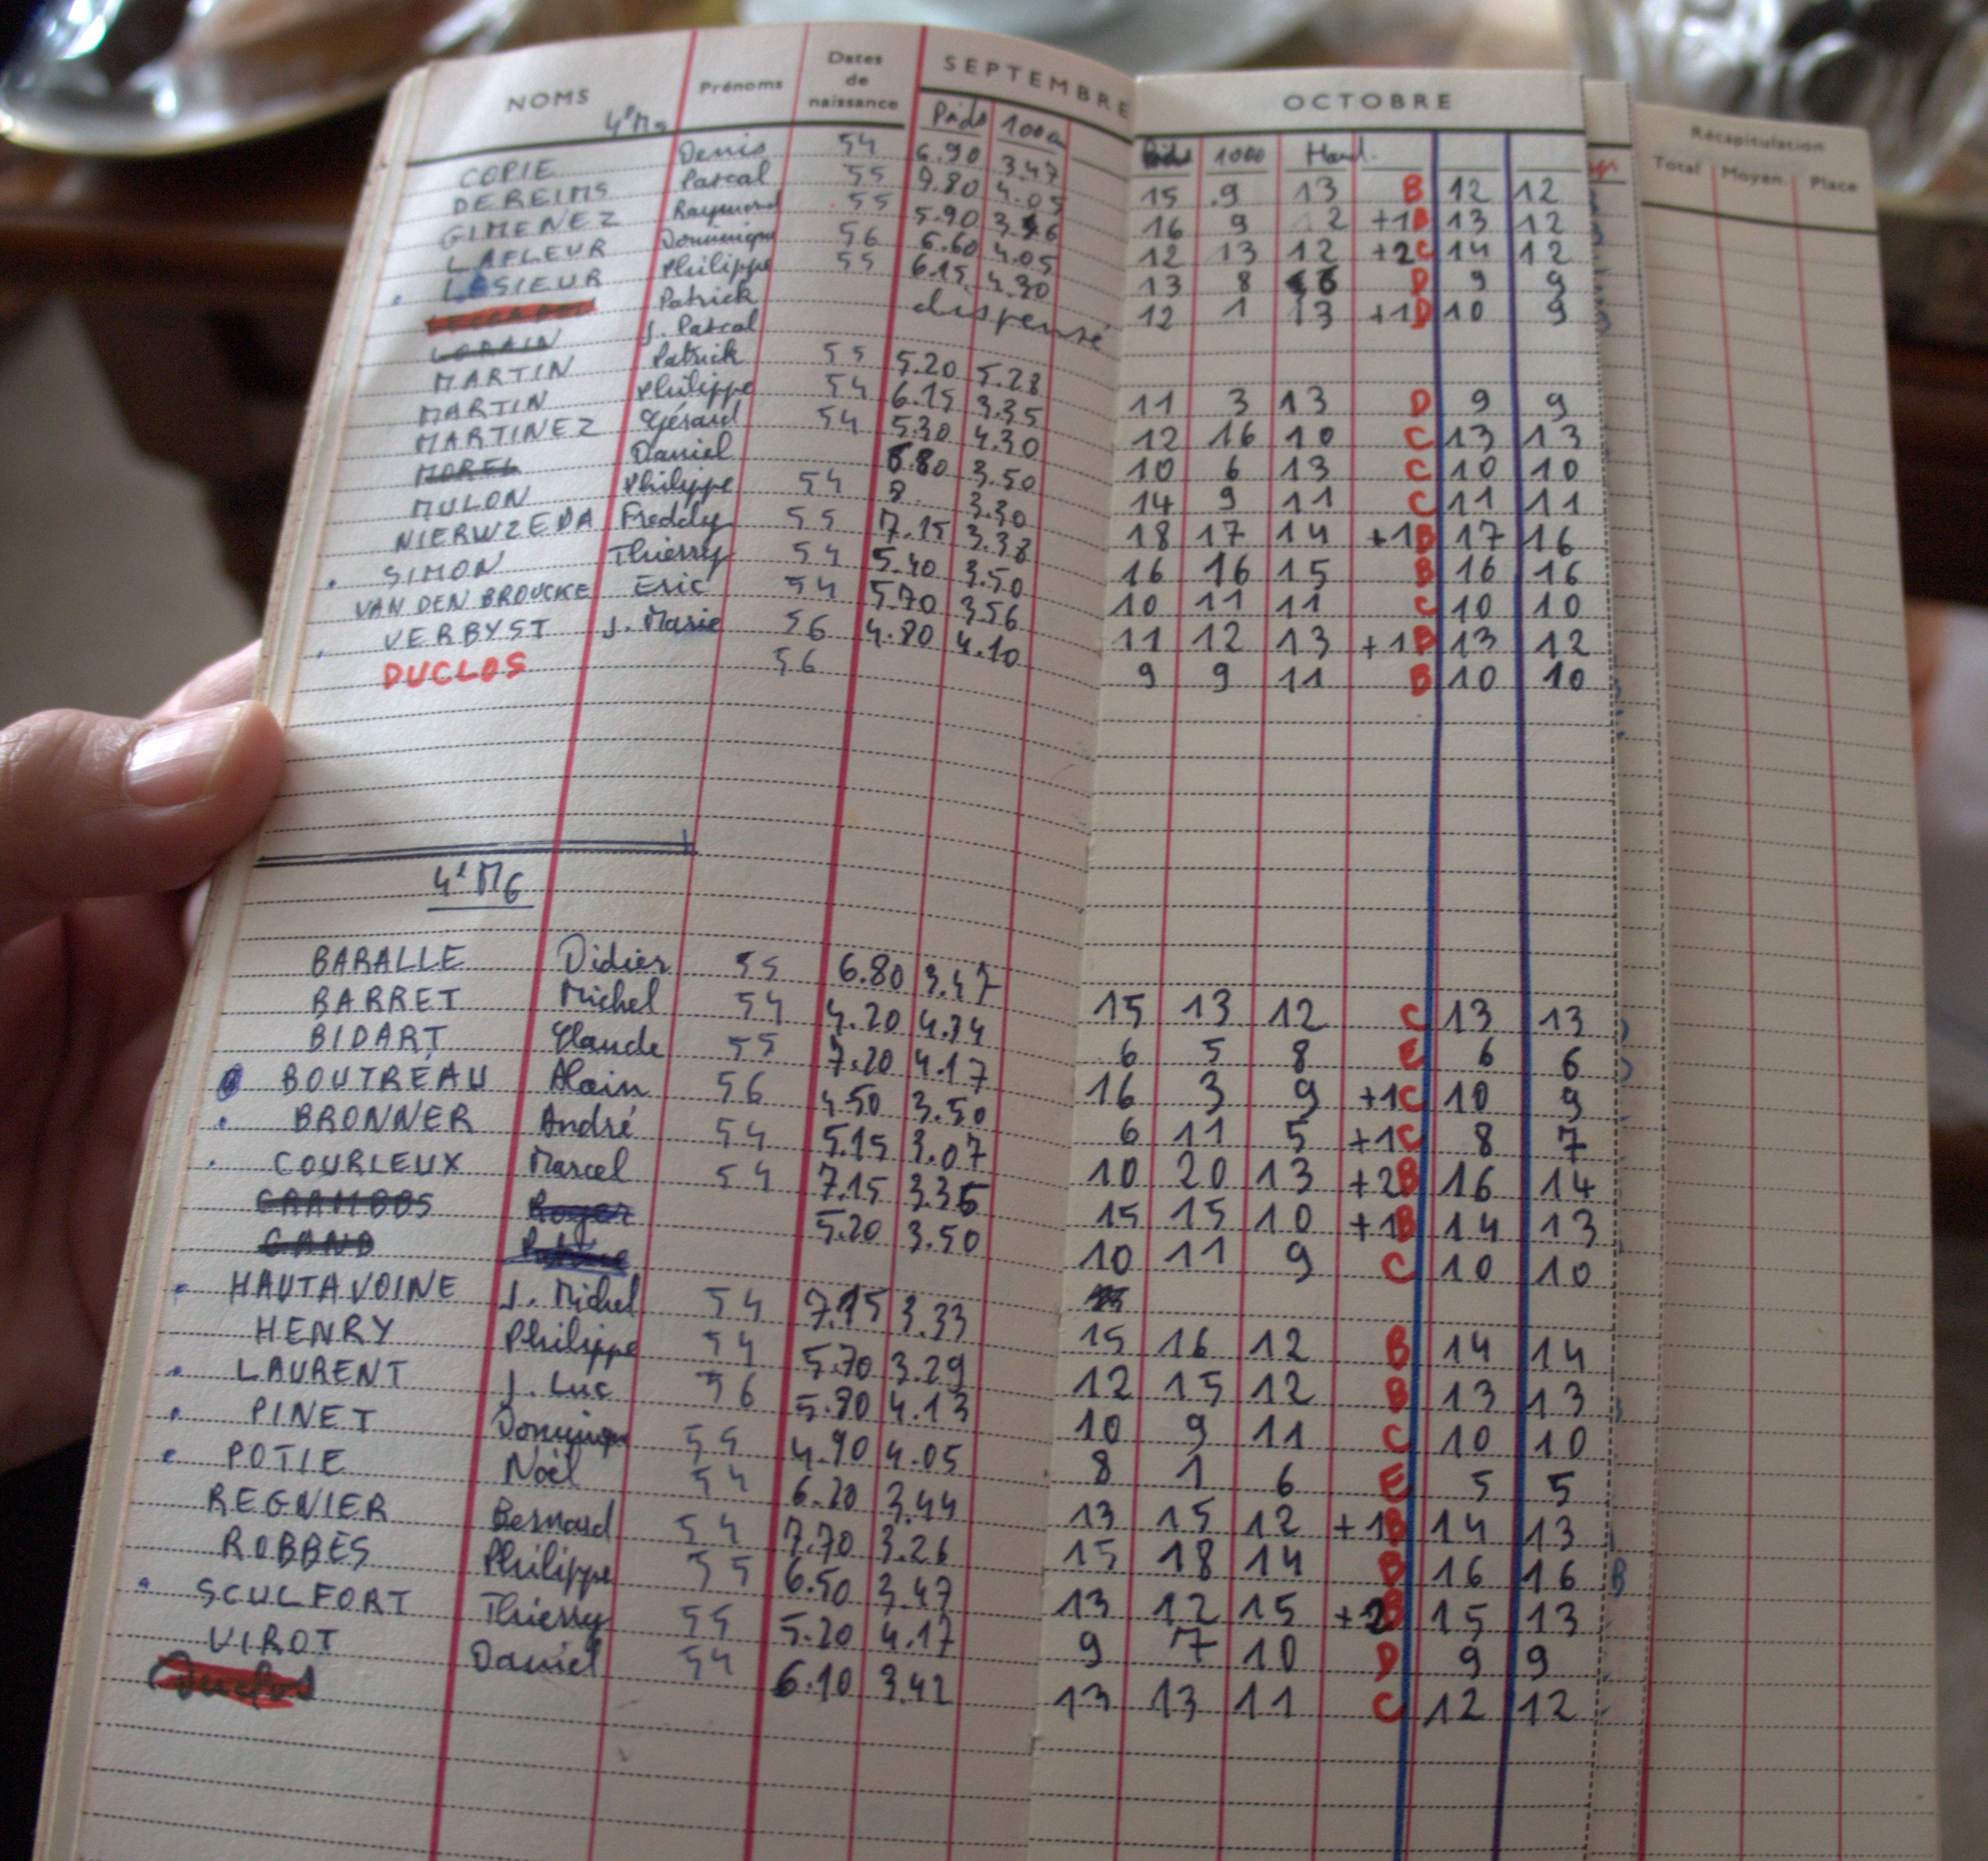 NOMS Prénoms Dates de naissance SEPTEMBRE OCTOBRE Récapitulation
4e M5 Poids 1000 1000 Hand. Total Moyen. Place
COPIE Denis 54 6.90 3.47 15 9 13 B 12 12
DEREIMS Pascal 55 7.80 4.05 16 9 12 +1 B 13 12
GIMENEZ Raymond 55 5.90 12 13 12 +2 C 14 12
LAFLEUR Dominique 56 6.60 4.05 13 8 D 9 9
LESIEUR Philippe 55 6.15 4.30 12 1 13 +1 D 10 9
Patrick dispensé
LORAIN J. Pascal
MARTIN Patrick 55 5.20 5.28 11 3 13 D 9 9
MARTIN Philippe 54 6.15 3.35 12 16 10 C 13 13
MARTINEZ Gérard 54 5.30 4.30 10 6 13 C 10 10
MOREL Daniel 6.80 3.50 14 9 11 C 11 11
MULON Philippe 54 8. 3.30 18 17 14 +1 B 17 16
NIERWZEDA Freddy 55 7.15 3.38 16 16 15 B 16 16
SIMON Thierry 54 5.40 3.50 10 11 11 C 10 10
VAN DEN BROUCKE Eric 54 5.70 3.56 11 12 13 +1 B 13 12
VERBYST J. Marie 56 4.80 4.10 9 9 11 B 10 10
DUCLOS 56
4e M6
BARALLE Didier 55 6.80 3.47 15 13 12 C 13 13
BARRET Michel 54 4.20 4.34 6 5 8 E 6 6
BIDART Claude 55 7.20 4.17 16 3 9 +1 C 10 9
BOUTREAU Alain 56 4.50 3.50 6 11 5 +1 C 8 7
BRONNER André 54 5.15 3.07 10 20 13 +2 B 16 14
COURLEUX Marcel 54 7.15 3.35 15 15 10 +1 B 14 13
CRAMBOS Roger 5.20 3.50 10 11 9 C 10 10
GAND
HAUTAVOINE J. Michel 54 7.15 3.33 15 16 12 B 14 14
HENRY Philippe 54 5.70 3.29 12 15 12 B 13 13
LAURENT J. Luc 56 5.80 4.13 10 9 11 C 10 10
PINET Dominique 55 4.90 4.05 8 1 6 E 5 5
POTIE Noël 54 6.20 3.44 13 15 12 +1 B 14 13
REGNIER Bernard 54 7.70 3.26 15 18 14 B 16 16 B
ROBBES Philippe 55 6.50 3.47 13 12 15 +2 B 15 13
SCULFORT Thierry 55 5.20 4.17 9 7 10 D 9 9
VIROT Daniel 54 6.10 3.42 13 13 11 C 12 12
Duclos